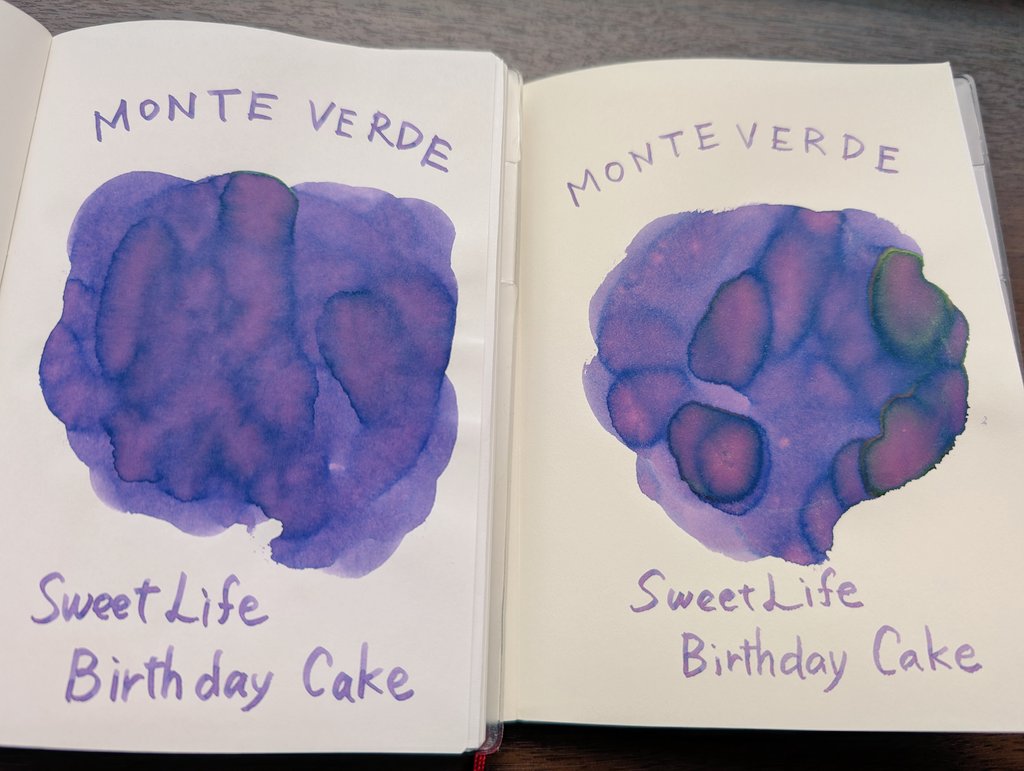 MONTE VERDE
Sweet Life
Birthday Cake
MONTE VERDE
Sweet Life
Birthday Cake